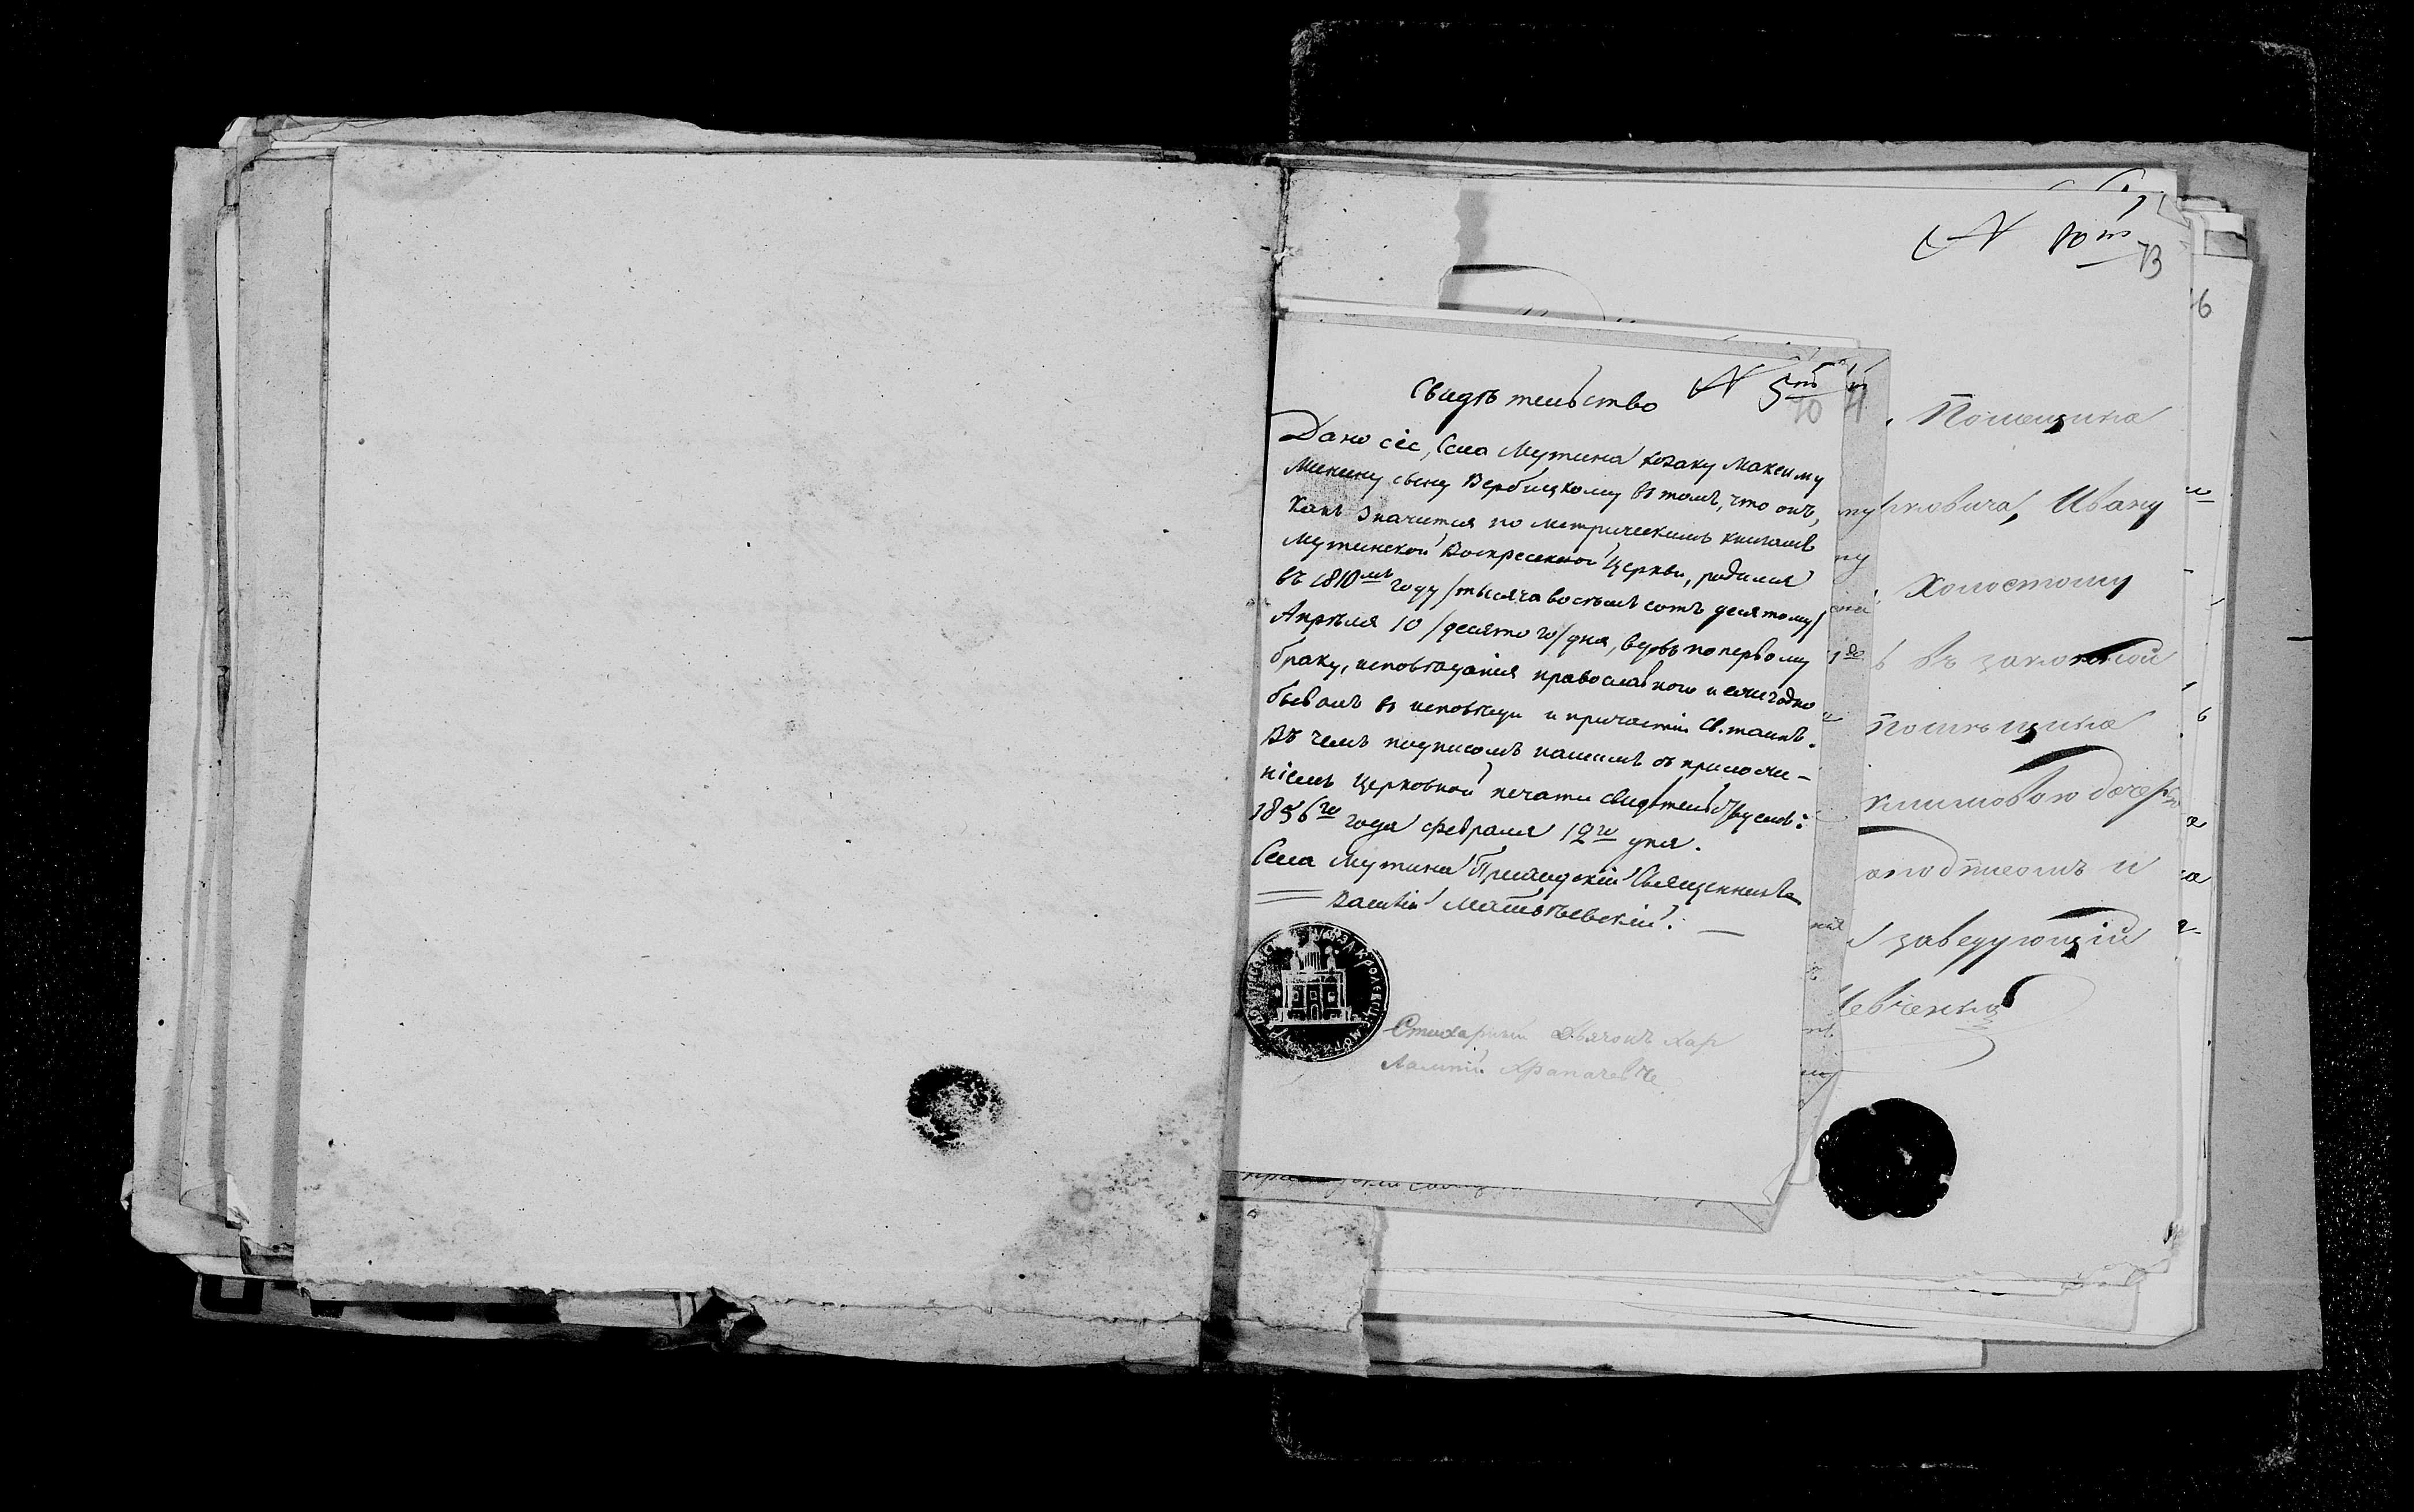 N 10й
73
6
Свидѣтельство N 5й
70 71
Дано сіе, Села Мутина козаку Максиму
Минину сыну Вербицкому въ томъ, что онъ,
какъ значится по метрическимъ книгамъ
Мутинской Воскресенской Церкви, родился
въ 1810мъ году /тысяча восемь сотъ десятому/
Апрѣля 10 /десятого/ дня, вдовъ по первому
браку, исповѣданія православного и ежегодно
бываетъ въ исповѣди и причастіи Св. таинъ.
Въ чемъ подписомъ нашимъ съ приложе-
ніемъ церковной печати свидѣтельствуемъ:
1856го года февраля 12го дня.
Села Мутина Приходскій Священникъ
Василій Матвѣевскій.
Стихарный Дьячокъ Хар
лампій
Помещика
Ивану
Холостому
въ законной
помѣщика
дочерью
и
заведующій